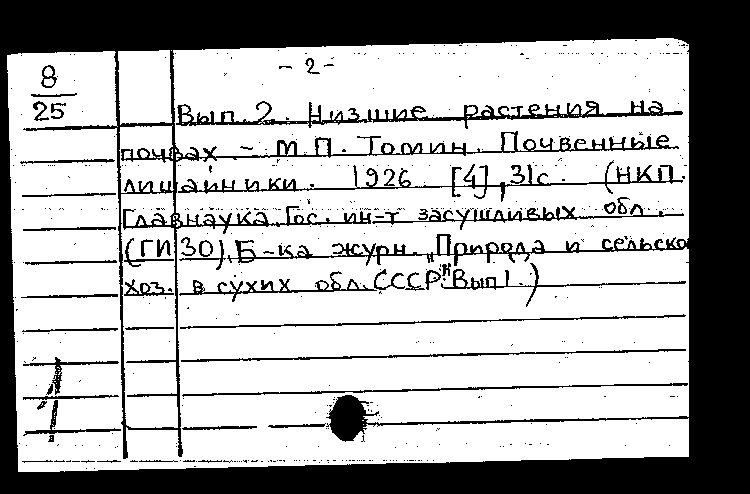 - 2 -
8
25
Вып. 2. Низшие растения на
почвах. – М.П. Томин. Почвенные
лишайники. 1926. [4], 31с. (НКП.
Главнаука. Гос. ин-т засушливых обл.
(ГИЗО). Б-ка журн. „Природа и сельско
хоз. в сухих обл. СССР." Вып 1.)
1